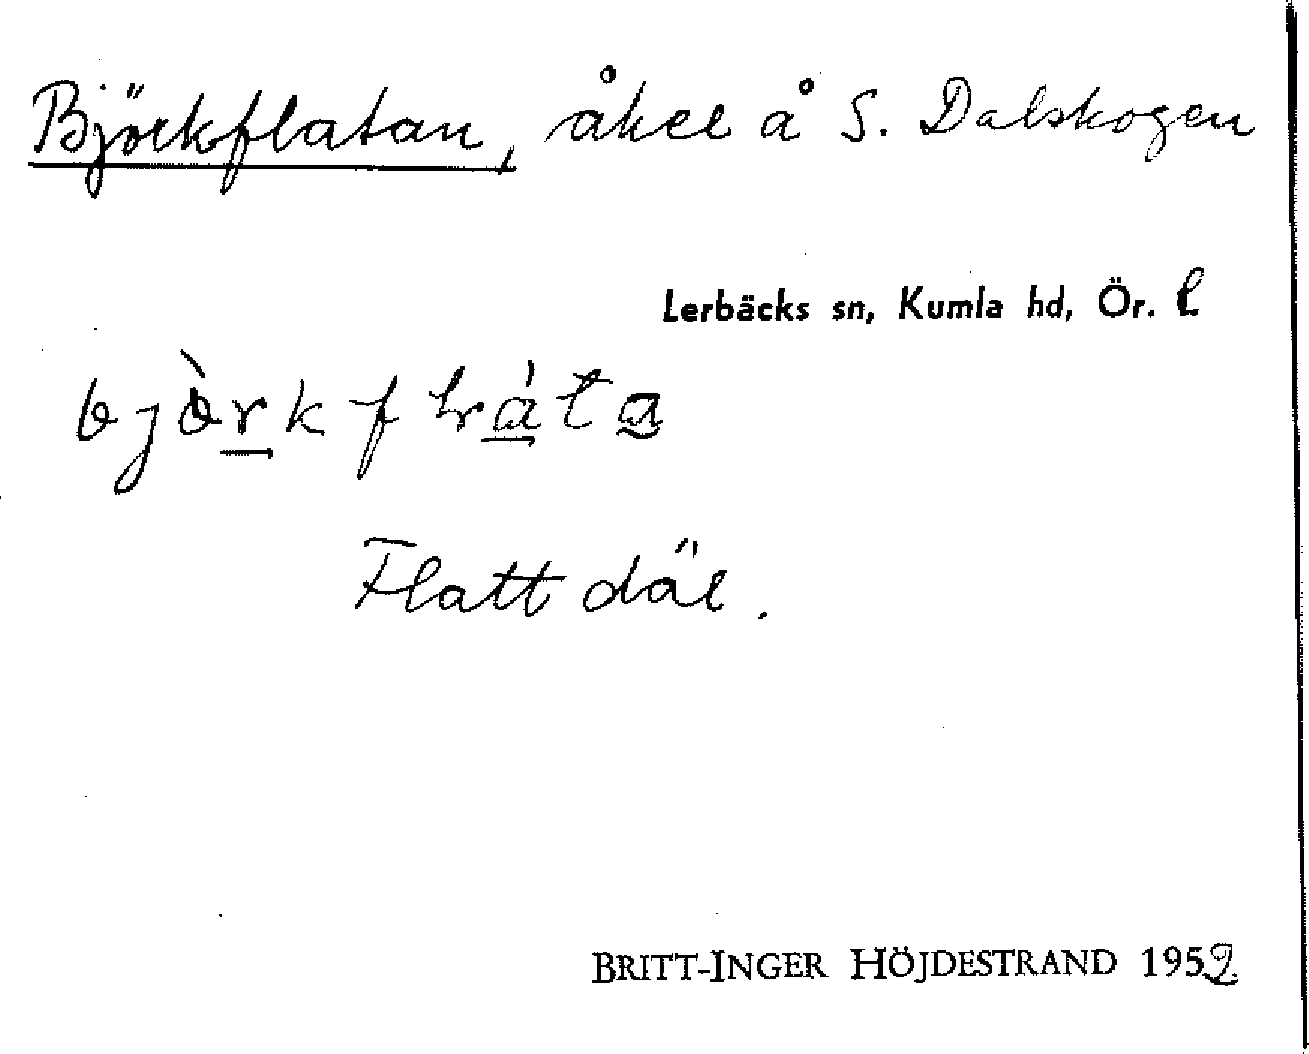 Björkflatan, åker å S. Dalskogen
Lerbäcks sn, Kumla hd, Ör. l
bjòrkflráta
Flatt där.
BRITT-INGER HÖJDESTRAND 1952